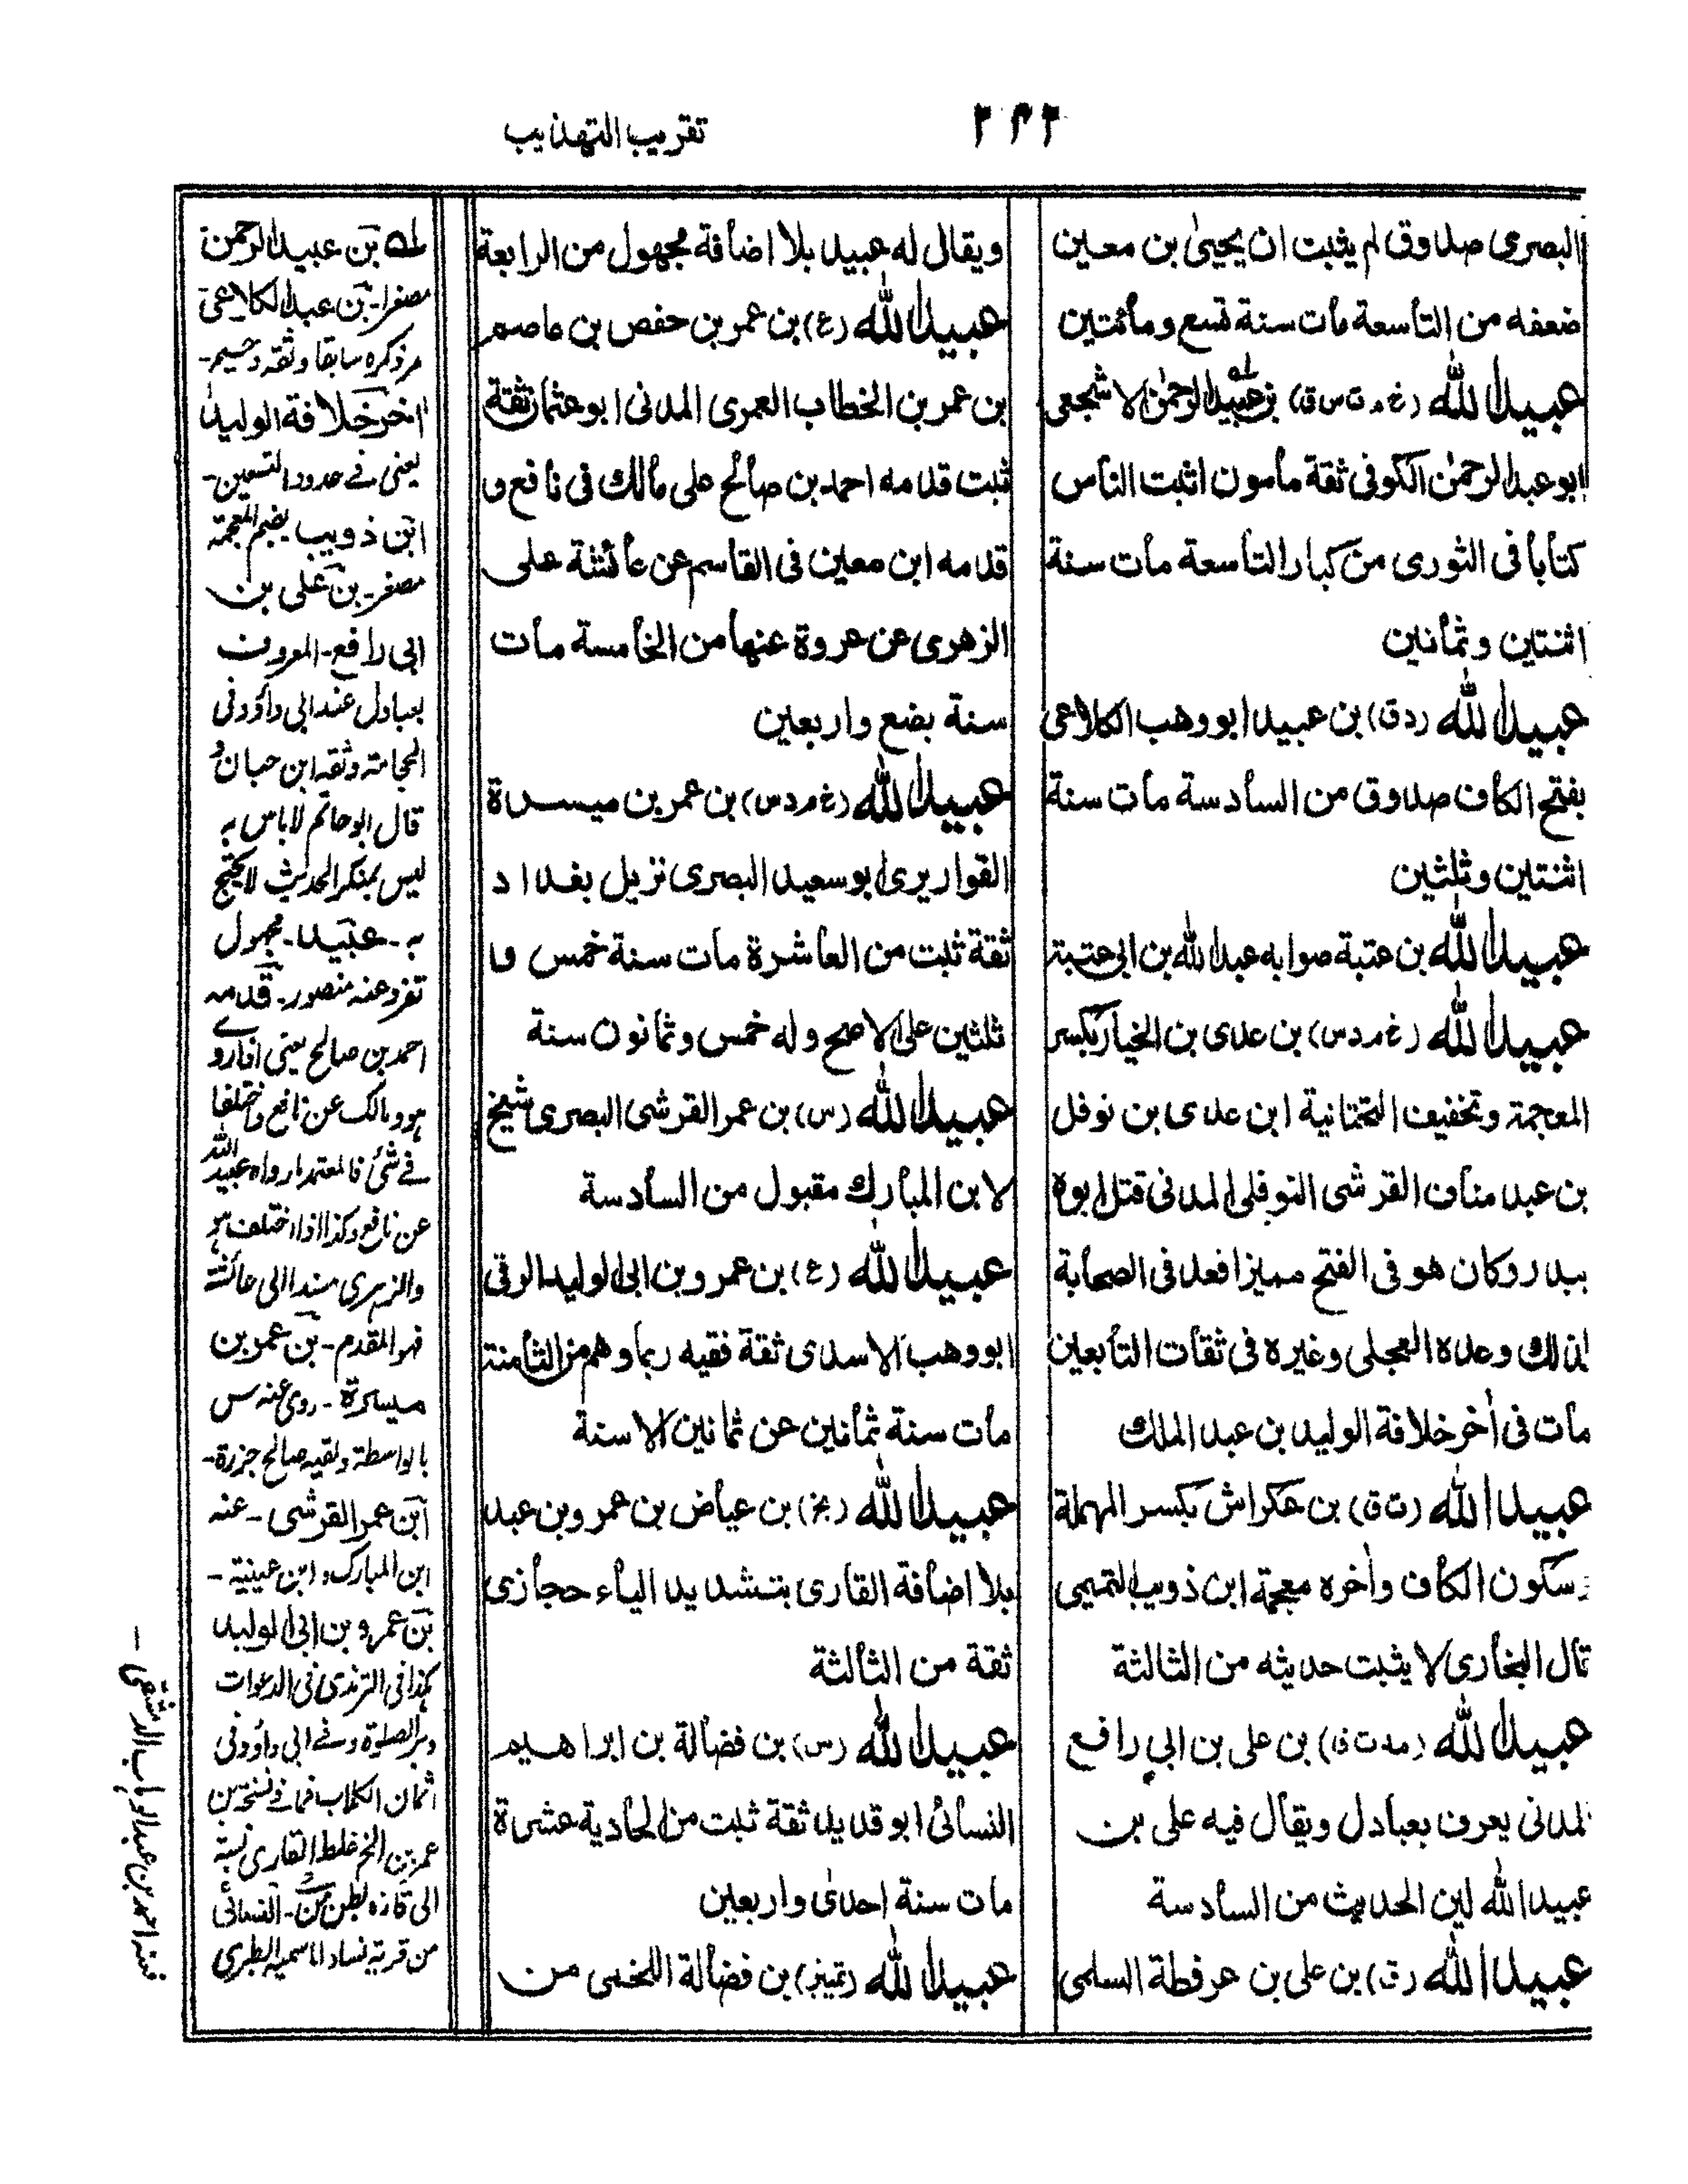 تقريب التهذيب
البصرى صدوق لم يثبت ان يحيىٰ بن معين
ضعفه من التاسعة مات سنة تسع ومائتين
عبيد الله (خ م ت س ق) بن عبيد الرحمٰن الاشجعى
ابو عبد الرحمٰن الكوفى ثقة مأمون اثبت الناس
كتابا فى الثورى من كبار التاسعة مات سنة
اثنتين وثمانين
عبيد الله (د ق) بن عبيد ابو وهب الكلاعى
بفتح الكاف صدوق من السادسة مات سنة
اثنتين وثلثين
عبيد الله بن عتبة صوابه عبد الله بن ابى عتبة
عبيد الله (خ م د س) بن عدى بن الخيار بكسر
المعجمة وتخفيف التحتانية ابن عدى بن نوفل
بن عبد مناف القرشى النوفلى المدنى قتل ابوه
ببدر وكان هو فى الفتح مميزا فعد فى الصحابة
لذلك وعده العجلى وغيره فى ثقات التابعين
مات فى أخر خلافة الوليد بن عبد الملك
عبيد الله (ت ق) بن عكراش بكسر المهملة
وسكون الكاف وأخره معجمة ابن ذويب التميمى
قال البخارى لا يثبت حديثه من الثالثة
عبيد الله (مد ت ق) بن على بن ابي رافع
المدنى يعرف بعبادل ويقال فيه على بن
عبيد الله لين الحديث من السادسة
عبيد الله (ق) بن على بن عرفطة السلمى
ويقال له عبيد بلا اضافة مجهول من الرابعة
عبيد الله (ع) بن عمر بن حفص بن عاصم
بن عمر بن الخطاب العمرى المدنى ابو عثمان ثقة
ثبت قدمه احمد بن صالح على مالك فى نافع و
قدمه ابن معين فى القاسم عن عائشة على
الزهرى عن عروة عنها من الخامسة مات
سنة بضع واربعين
عبيد الله (خ م د س) بن عمر بن ميسرة
القواريرى ابو سعيد البصرى نزيل بغداد
ثقة ثبت من العاشرة مات سنة خمس و
ثلثين على الاصح وله خمس وثمانون سنة
عبيد الله (س) بن عمر القرشى البصرى شيخ
لابن المبارك مقبول من السادسة
عبيد الله (ع) بن عمرو بن ابى الوليد الرقى
ابو وهب الاسدى ثقة فقيه ربما وهم من الثامنة
مات سنة ثمانين عن ثمانين الا سنة
عبيد الله (بخ) بن عياض بن عمرو بن عبد
بلا اضافة القارى بتشديد الياء حجازى
ثقة من الثالثة
عبيد الله (س) بن فضالة بن ابراهيم
النسائى ابو قديد ثقة ثبت من الحادية عشرة
مات سنة احدىٰ واربعين
عبيد الله (تميز) بن فضالة اللخمى من
له بن عبيد الرحمن
مصغرا۔ بن عبد الكلاعى
مر ذكره سابقا وثقه دحيم۔
اخر خلافة الوليد
يعنى فے حدود التسعين۔
ابن ذويب بضم المعجمة
مصغر۔ بن على بن
ابى رافع۔ المعروف
بعبادل عند ابى داؤد فى
الحجامة وثقه ابن حبان و
قال ابو حاتم لا باس به
ليس بمنكر الحديث لا يحتج
به۔ عبيد۔ مجهول
تفرد عنه منصور۔ قدمه
احمد بن صالح يعنى اذا روے
هو ومالك عن نافع واختلفا
فے شئ فالمعتمد ما رواه عبيد الله
عن نافع وكذا اذا اختلف هو
والزهرى مسندا الى عائشة
فهو المقدم۔ بن عمر بن
ميسرة۔ روى عنه س
بالواسطة ولقيه صالح جزرة۔
ابن عمر القرشى۔ عنه
ابن المبارك وابن عيينة۔
بن عمرو بن ابى الوليد
كذا فى الترمذى فى الدعوات
وبر الصلوة وفے ابى داؤد فى
اثمان الكلاب فما فے نسخة بن
عمر بن الخ غلط القارى نسبة
الى قاره بطن من۔ النسائى
من قرية نسا
احمد بن عبد الوهاب الدمشقى ۔